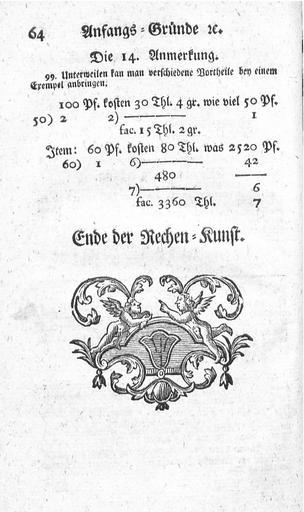 64 Anfangs-Gründe ꝛc.
Die 14. Anmerkung.
99. Unterweilen kan man verschiedene Vortheile bey einem
Exempel anbringen.
100 Pf. kosten 30 Thl. 4 gr. wie viel 50 Pf.
50) 2 2) 1
fac. 15 Thl. 2 gr.
Item: 60 Pf. kosten 80 Thl. was 2520 Pf.
60) 1 6) 42
480
7) 6
fac. 3360 Thl. 7
Ende der Rechen-Kunst.